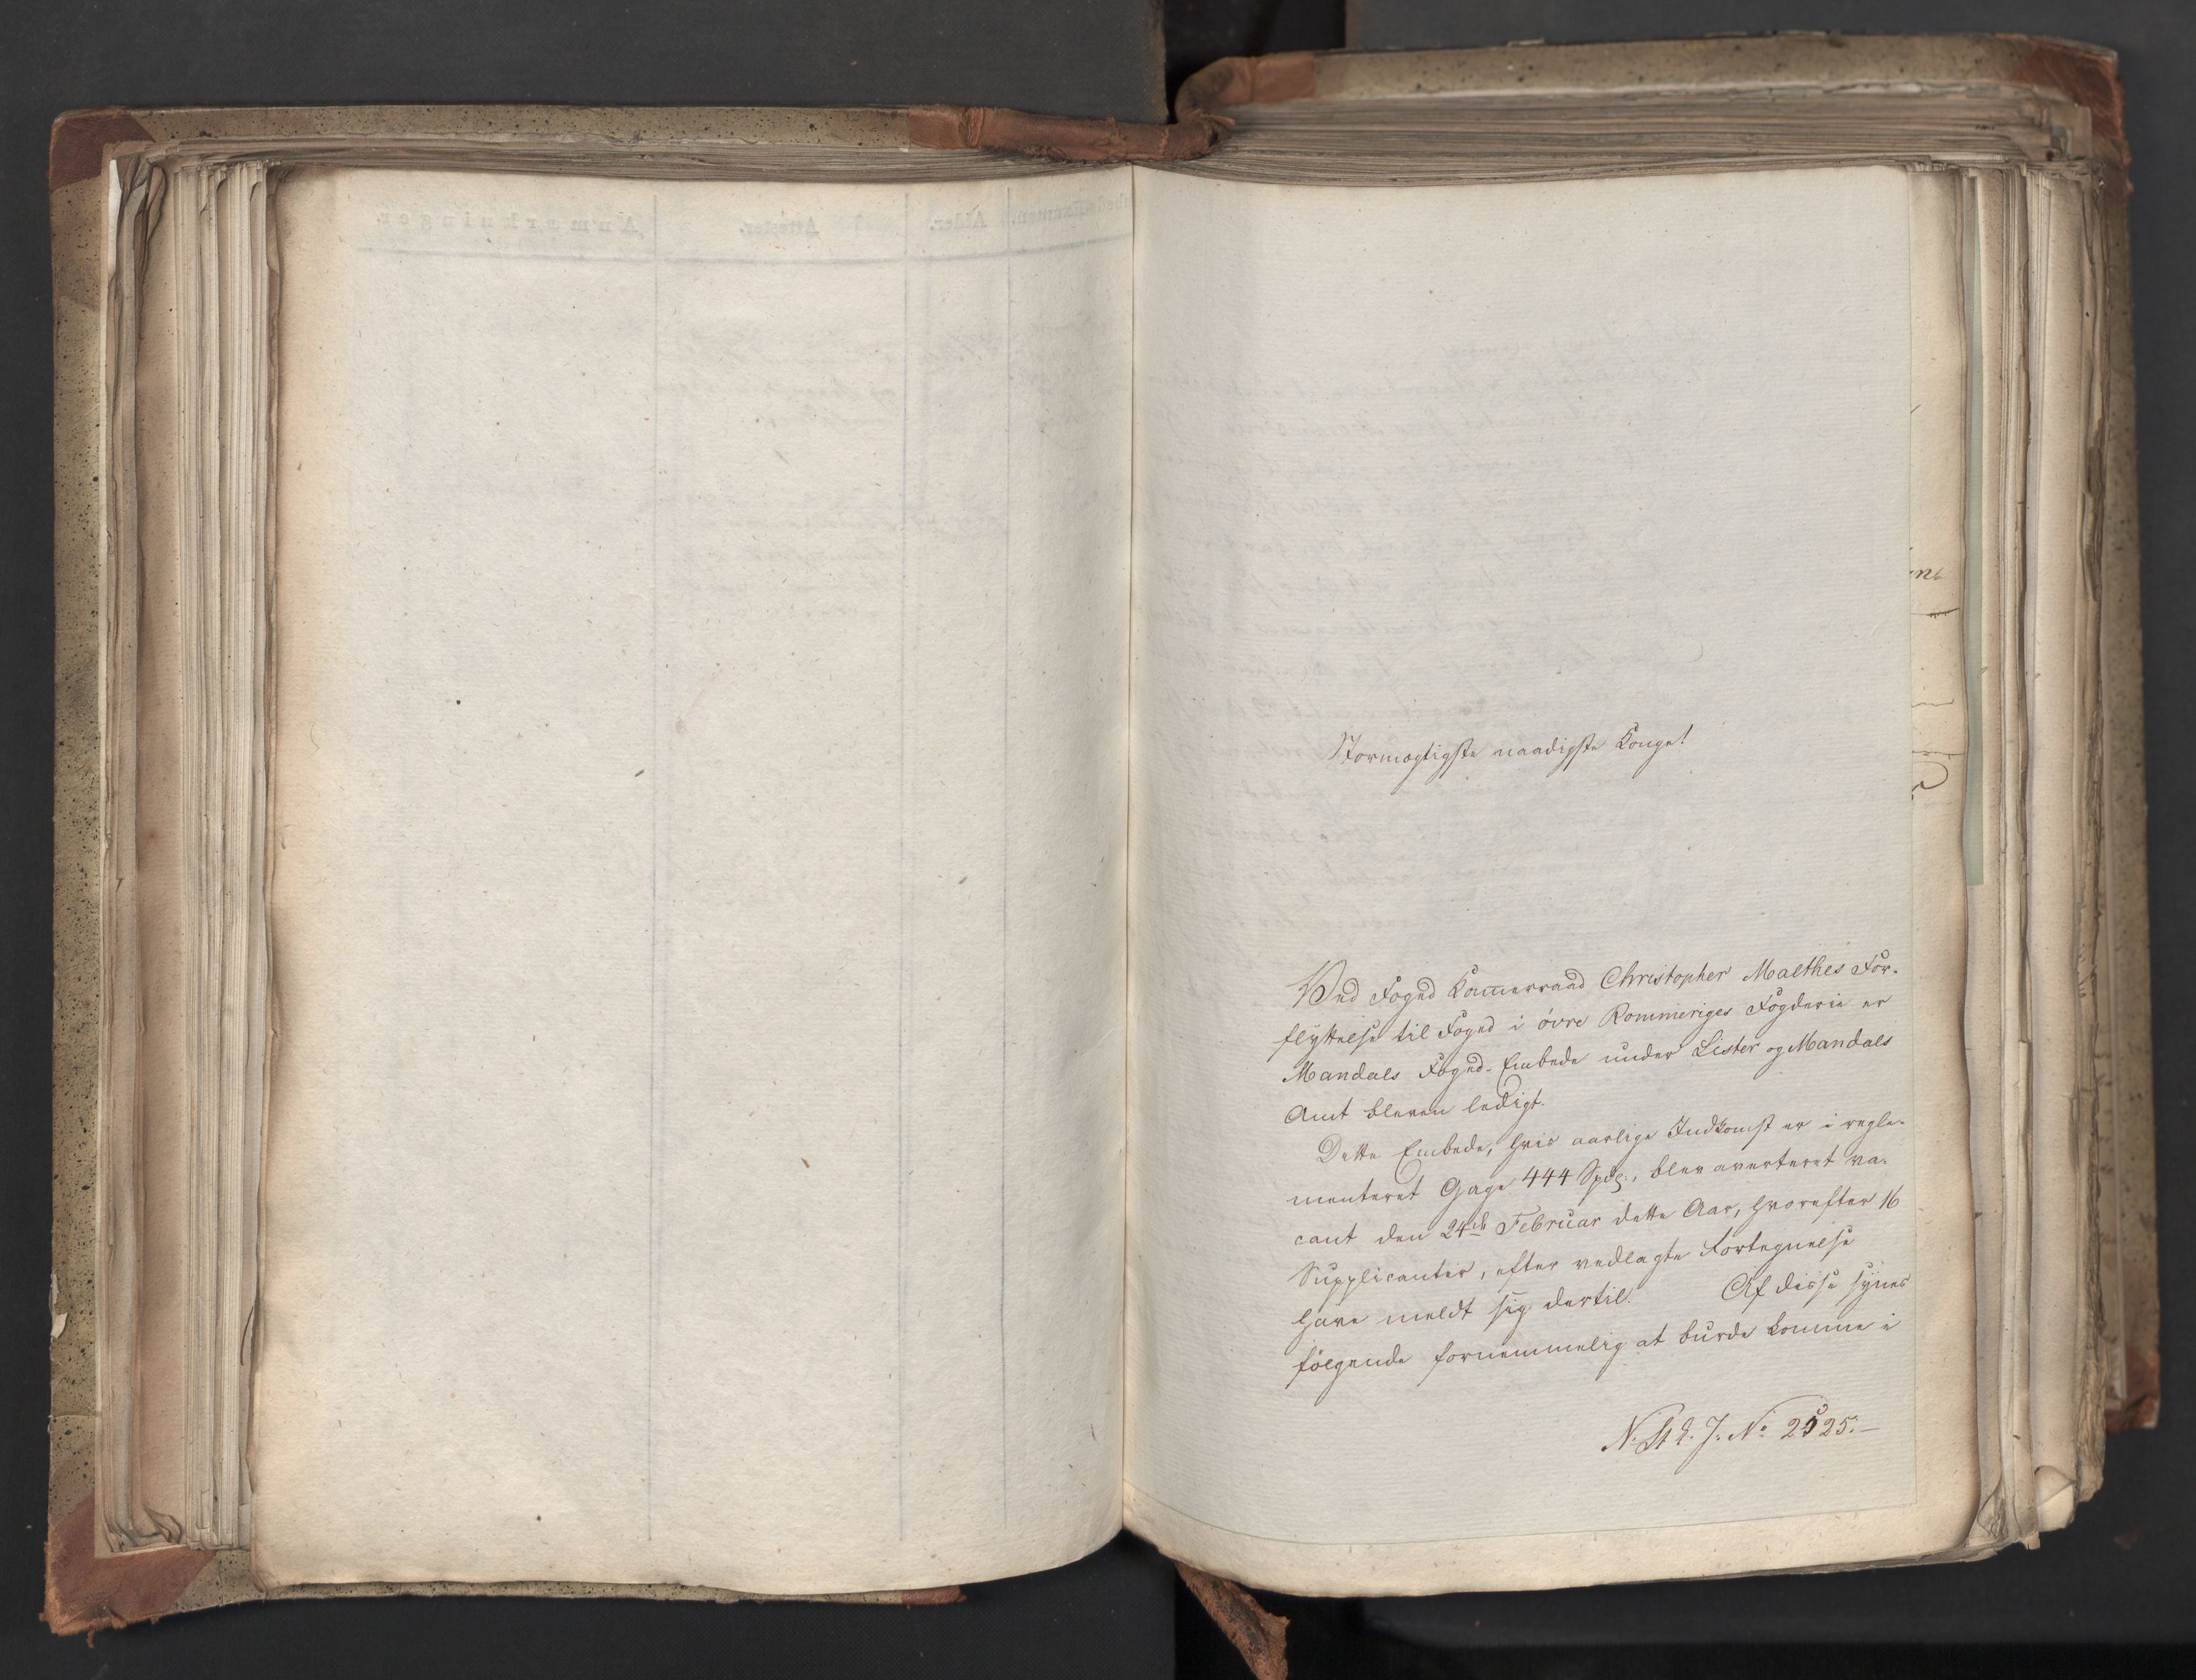 Stormægtigste naadigste Konge!
Ved Foged Kammerraad Christopher Malthes For-
flyttelse til Foged i övre Rommeriges Fogderie er
Mandals Foged-Embede under Lister og Mandals
Amt bleven ledigt.
Dette Embede, hvis aarlige Indkomst er i regle-
menteret Gage 444 Spds., blev averteret va-
cant den 24de Februar dette Aar, hvorefter 16
Supplicanter, efter vedlagte Fortegnelse
have meldt sig dertil. Af disse synes
følgende fornemmelig at burde komme i
N. St. S. J. No 2525.–
Anmærkninger.
Attester.
Alder.